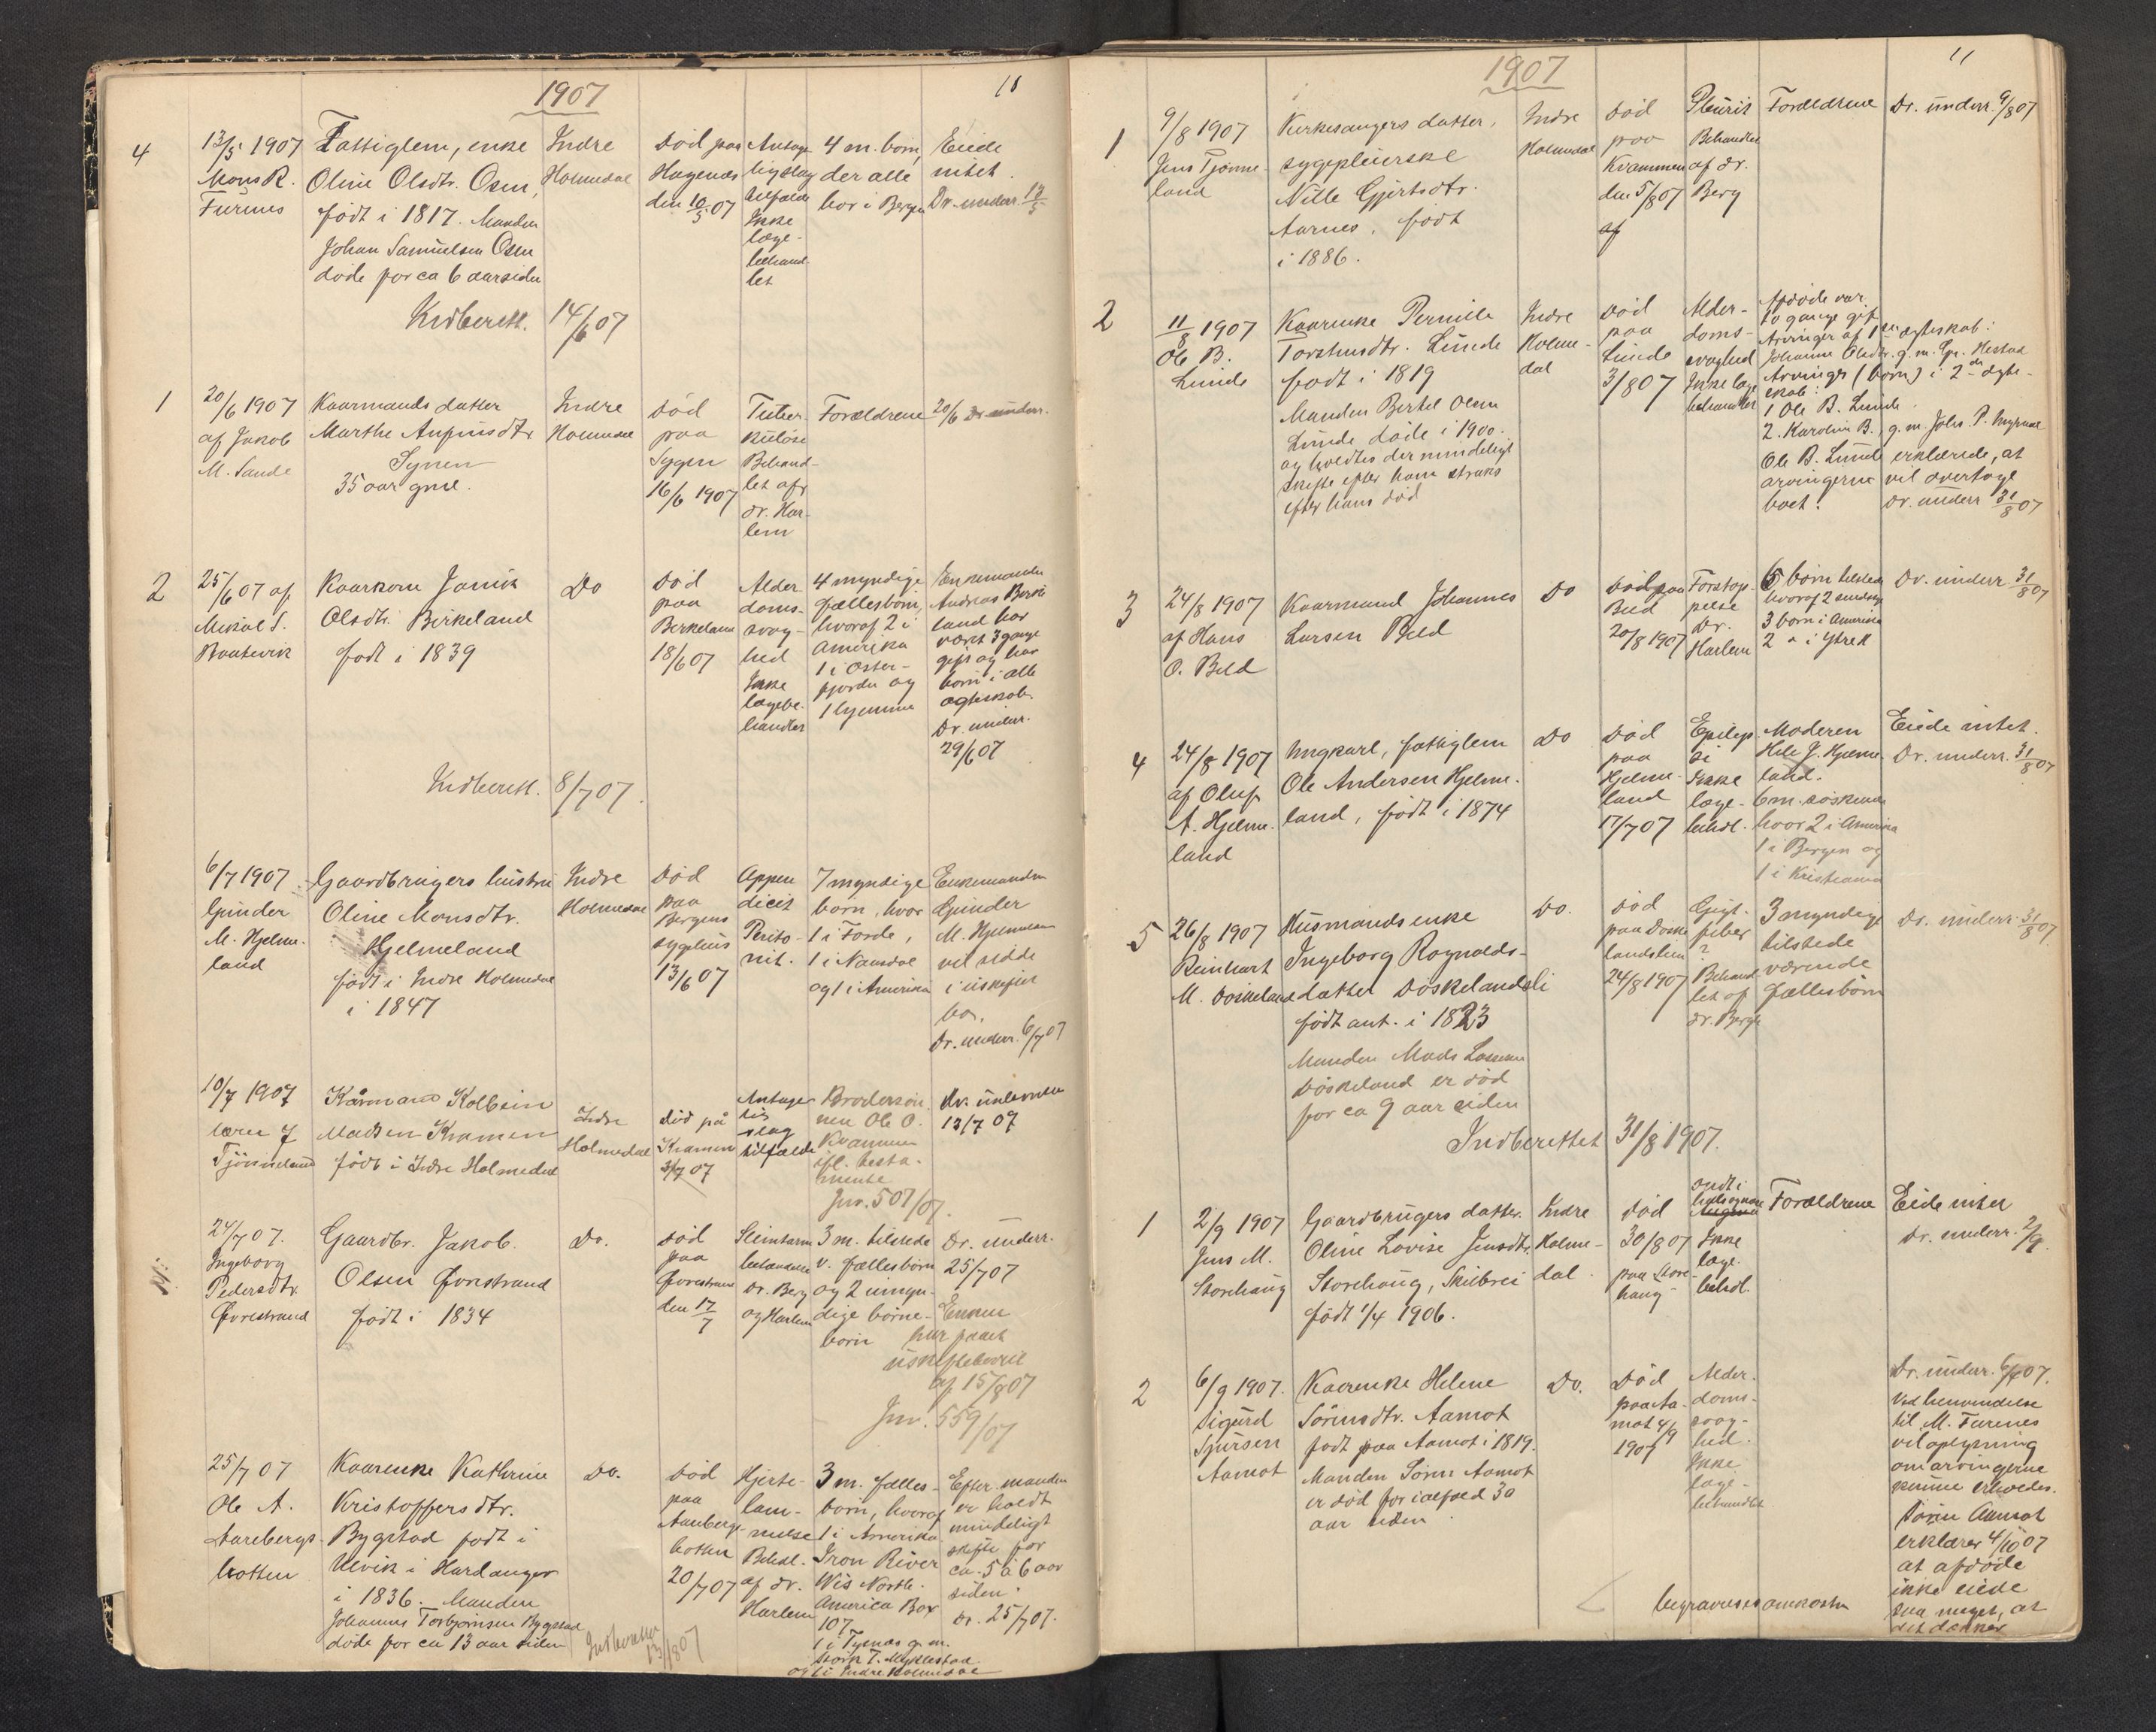 1907
4
13/5 1907
Mons R.
Furenes
Fattiglem, enke
Oline Olsdtr. Osen,
født i 1817. Manden
Johan Samuelsen Osen
døde for ca 6 aar siden
Indre
Holmedal
Død paa
Hagenæs
den 10/5 07
Antage
ligslag
tilfælde
Ikke
læge-
behand
let
4 m. børn,
der alle
bor i Bergen
Eiede
intet.
Dr. underr. 13/5
Indberett. 14/6 07
1
20/6 1907
af Jakob
M. Sande
Kaarmands datter
Marthe Anfinsdtr
35 aar gml.
Indre
Holmedal
Død
paa
16/6 1907
Tuber-
kulose
Behand-
let af
dr. Har-
lem
Forældrene
20/6 Dr underr.
2
25/6 07 af
Mikal S.
Kaarkone
Olsdtr. Birkeland
født i 1839
Do
Død
paa
Birkeland
18/6 07
Alder
doms-
svag-
hed
Ikke
lægebe-
handlet
4 myndige
fællesbørn,
hvoraf 2 i
Amerika
1 i Oster-
fjorden og
1 hjemme
Enkemanden
Andreas Birke
land har
været 3 gange
gift og har
børn i alle
ægteskab.
Dr. underr.
29/6 07
Indberett. 8/7 07.
6/7 1907
Gunder
M. Hjelme-
land
Gaardbrugers hustru
Oline Monsdtr.
Hjelmeland
født i Indre Holmedal
i 1847
Indre
Holmedal
Død
paa
Bergens
sygehus
13/6 07
Appen
dicit
Perito-
nit.
7 myndige
børn, hvor
1 i Førde,
1 i Namdal
og 1 i Amerika
Enkemanden
Gunder
M. Hjelmeland
vil sidde
i uskiftet
bo.
Dr. underr. 6/7 07
10/7 1907
Tjønneland
Kårmand Kolbein
Madsen Kvamen
født i Indre Holmedal
Indre
Holmedal
død på
Kvamen
Antage
lig
slag
tilfælde
Brodersøn
nen Ole O.
Kvammen
ifl. testa-
mente
Jnr. 507/07.
Dr. underrettet
13/7 07
24/7 07.
Ingeborg
Pedersdtr.
Øvrestrand
Gaardbr. Jakob
Olsen Øvrestrand
født i 1834
Do.
død
paa
Øvrestrand
den 17/7
Dr. Berg
og Harlem
3 m. tilstede
v. fællesbørn
og 2 umyn-
dige børne-
børn
Dr. underr.
25/7 07
Enken
har faaet
uskiftebevil
af 15/8 07
Jnr. 559/07
25/7 07
Ole A.
Aarebergs
botten
Kaarenke Kathrine
Kristoffersdtr.
Bygstad født i
Ulvik i Hardanger
i 1836. Manden
Johannes Torbjørnsen Bygstad
døde for ca 13 aar siden
Do.
Død
paa
Aareberg-
botten
20/7 07
Hjerte-
lam-
melse
Behdl.
af dr.
Harlem
3 m. fælles-
børn, hvoraf
1 i Amerika
Iron River
Wis North.
America Box
107
og 1 i Indre Holmedal
Efter manden
er holdt
mindeligt
skifte for
ca. 5 à 6 aar
siden.
Dr. 25/7 07.
Indberettet
13/8 07
11
1907
1
9/8 1907
Jens Tjønne-
land
Kirkesangers datter,
sygepleierske
Nille Gjertsdtr.
Aarnes, født
i 1886.
Indre
Holmedal
Død
paa
Kvammen
den 5/8 07
af
Pleurit
Behandlet
af dr.
Berg
Forældrene
Dr. underr. 9/8 07
2
11/8 1907
Ole B.
Lunde
Kaarenke Pernille
Torsteinsdtr. Lunde
født i 1819
Manden Bertel Olsen
Lunde døde i 1900.
og holdtes der mindeligt
skifte efter ham straks
efter hans død
Indre
Holme-
dal
Død
paa
Lunde
3/8 07
Alder-
doms-
svaghed
Ikke læge
behandlet
Afdøde var
to gange gift
Arvinger af 1ste ægteskab:
Johanne Olsdtr. g.m. Gr. Hestad
Arvinger (børn) i 2det ægte-
skab:
1 Ole B. Lunde
2. Karoline B., g.m. Johs. P. Myrmel
Ole B. Lunde erklærede, at
arvingerne vil overtage
boet.
Dr. underr 31/8 07
3
24/8 1907
af Hans
O. Bell
Kaarmand Johannes
Larsen Bell
Do
Død paa
Bell
20/8 1907
Forstop-
pelse
Dr.
Harlem
5 børn tilstede
hvoraf 2 umyndig
3 børn i Amerika
2 " i Ytre H
Dr. underr. 31/8 07
4
24/8 1907
af Oluf
A. Hjelme-
land
Ungkarl, fattiglem
Ole Andersen Hjelme-
land, født i 1874
Do
Død
paa
Hjelme-
land
17/7 07
Epilep
si
Ikke
læge-
behdl.
Moderen
J. Hjelme-
land.
6 m. søskende
hvor 2 i Amerika
1 i Bergen og
1 i Kristiania
Eiede intet.
Dr. underr. 31/8 07
5
26/8 1907
Reinhart
M. Døskeland
Husmands enke
Ingeborg Rognalds-
datter Døskelandsli
født ant. i 1823
Manden Mads Lassesen
Døskeland er død
for ca 9 aar siden
Do.
Død
paa Døske
landslien
24/8 1907
Gigt-
feber
?
Behand
let af
dr. Berg
3 myndige
tilstede
værende
fællesbørn
Dr. underr. 31/8 07.
Indberettet 31/8 1907.
1
2/9 1907
Jens M.
Storehaug
Gaardbrugers datter
Oline Lovise Jensdtr.
Storehaug, Skilbrei
født 1/4 1906.
Indre
Holme-
dal
Død
30/8 07
paa Store-
haug
ondt i
Ikke
læge-
behdl.
Forældrene
Eide intet
Dr. underr. 2/9.
2
6/9 1907.
Sigurd
Sjursen
Aamot
Kaarenke Helene
Sørensdtr. Aamot
født paa Aamot i 1819.
Manden Sören Aamot
er død for ialfald 30
aar siden.
Do.
Død
paa Aa-
mot 4/9
1907
Alder-
doms-
svag-
hed.
Ikke
læge-
behandlet
Dr. underr. 6/9 07.
Ved henvendelse
til M. Furenes
vil oplysning
om arvingerne
kunne erholdes.
Søren Aamot
erklærer 4/10 07
at afdøde
ikke eiede
saa meget, at
det dækker
begravelsesomkostn